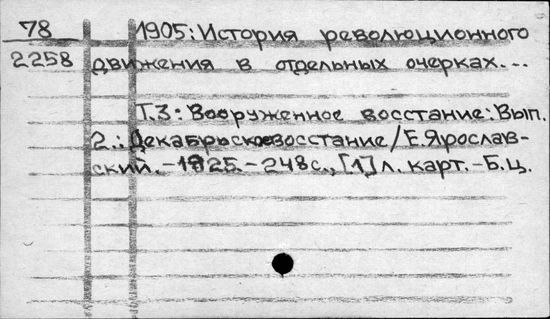 78 1905: История революционного
2258 движения в отдельных очерках...
Т.3: Вооруженное восстание: Вып.
2.: Декабрьское восстание / Е. Ярослав-
ский. - 1925. - 248 с., [1] л. карт. - Б.ц.